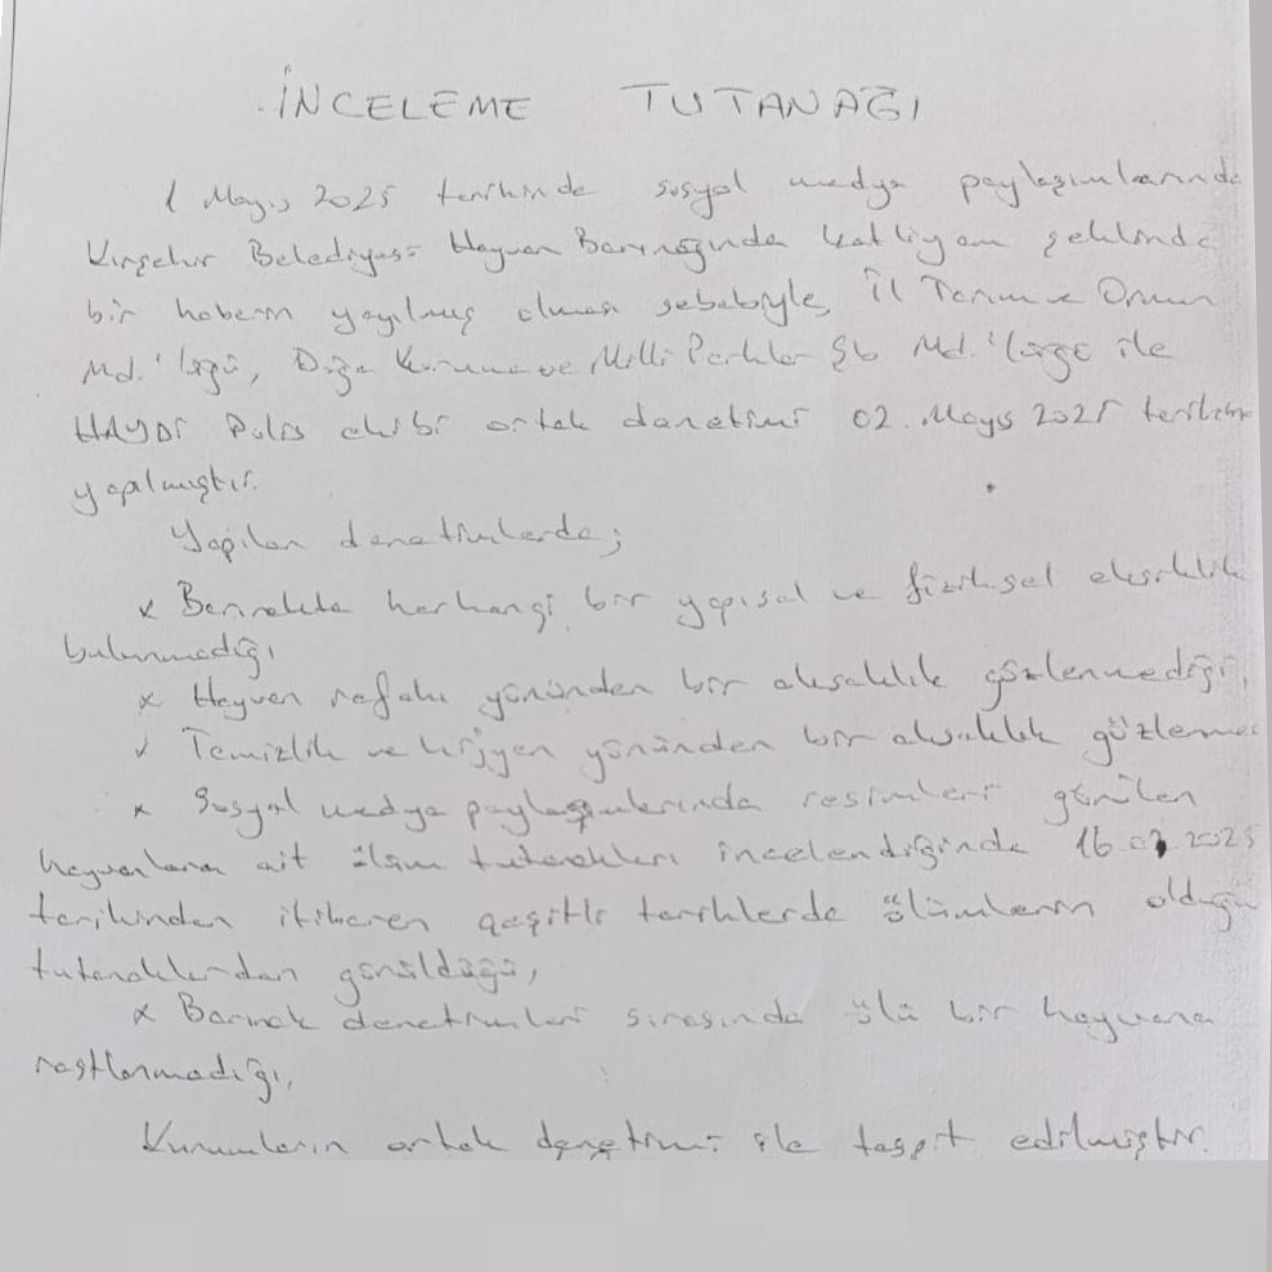 İNCELEME TUTANAĞI
1 Mayıs 2025 tarihinde sosyal medya paylaşımlarında
Kırşehir Belediyesi Hayvan Barınağında katliyam şeklinde
bir haberin yayılmış olması sebebiyle, İl Tarım ve Orman
Md.'lüğü, Doğa Koruma ve Milli Parklar Şb Md.'lüğü ile
HAYDİ Polis ekibi ortak denetimi 02. Mayıs 2025 tarihinde
yapılmıştır.
Yapılan denetimlerde;
x Barınakta herhangi bir yapısal ve fiziksel eksiklik
bulunmadığı
x Hayvan refahı yönünden bir aksaklık gözlenmediği,
x Temizlik ve hijyen yönünden bir aksaklık
x Sosyal medya paylaşımlarında resimleri görülen
hayvanlara ait ölüm tutanakları incelendiğinde 2025
tarihinden itibaren çeşitli tarihlerde ölümlerin olduğu
tutanaklardan görüldüğü,
x Barınak denetimleri sırasında ölü bir hayvana
rastlanmadığı,
Kurumların ortak denetimi ile tespit edilmiştir.